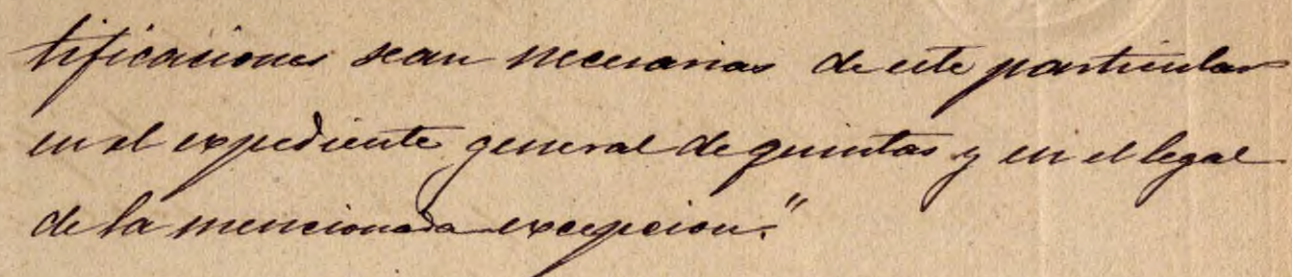 tificaciones sean necesarias de este particular
en el expediente general de quintas y en el legal
de la mencionada excepcion."